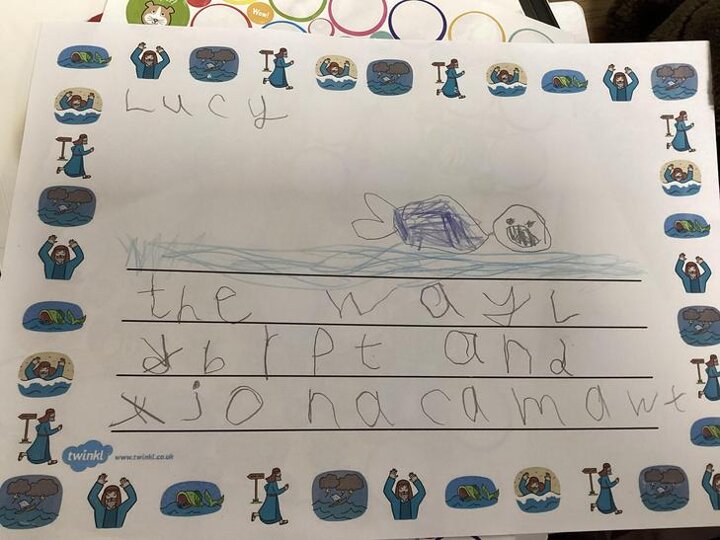 Wow!
Lucy
the wayl
brpt and
jonacamawt
twinkl www.twinkl.co.uk